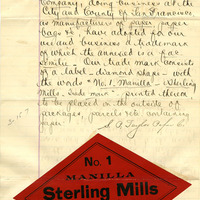 Company, doing business at the
City and County of San Francisco
as manufacturers of paper, paper
bags &c, have adopted for our
use and business a trademark
of which the annexed is a fac
simile. Our trade mark consists
of a label - diamond shape - with
the words "No. 1, Manilla - Sterling
Mills, printed thereon,
to be placed on the outside of
packages, parcels &c containing
paper.
S. P. Taylor Paper Co
No. 1
MANILLA
Sterling Mills